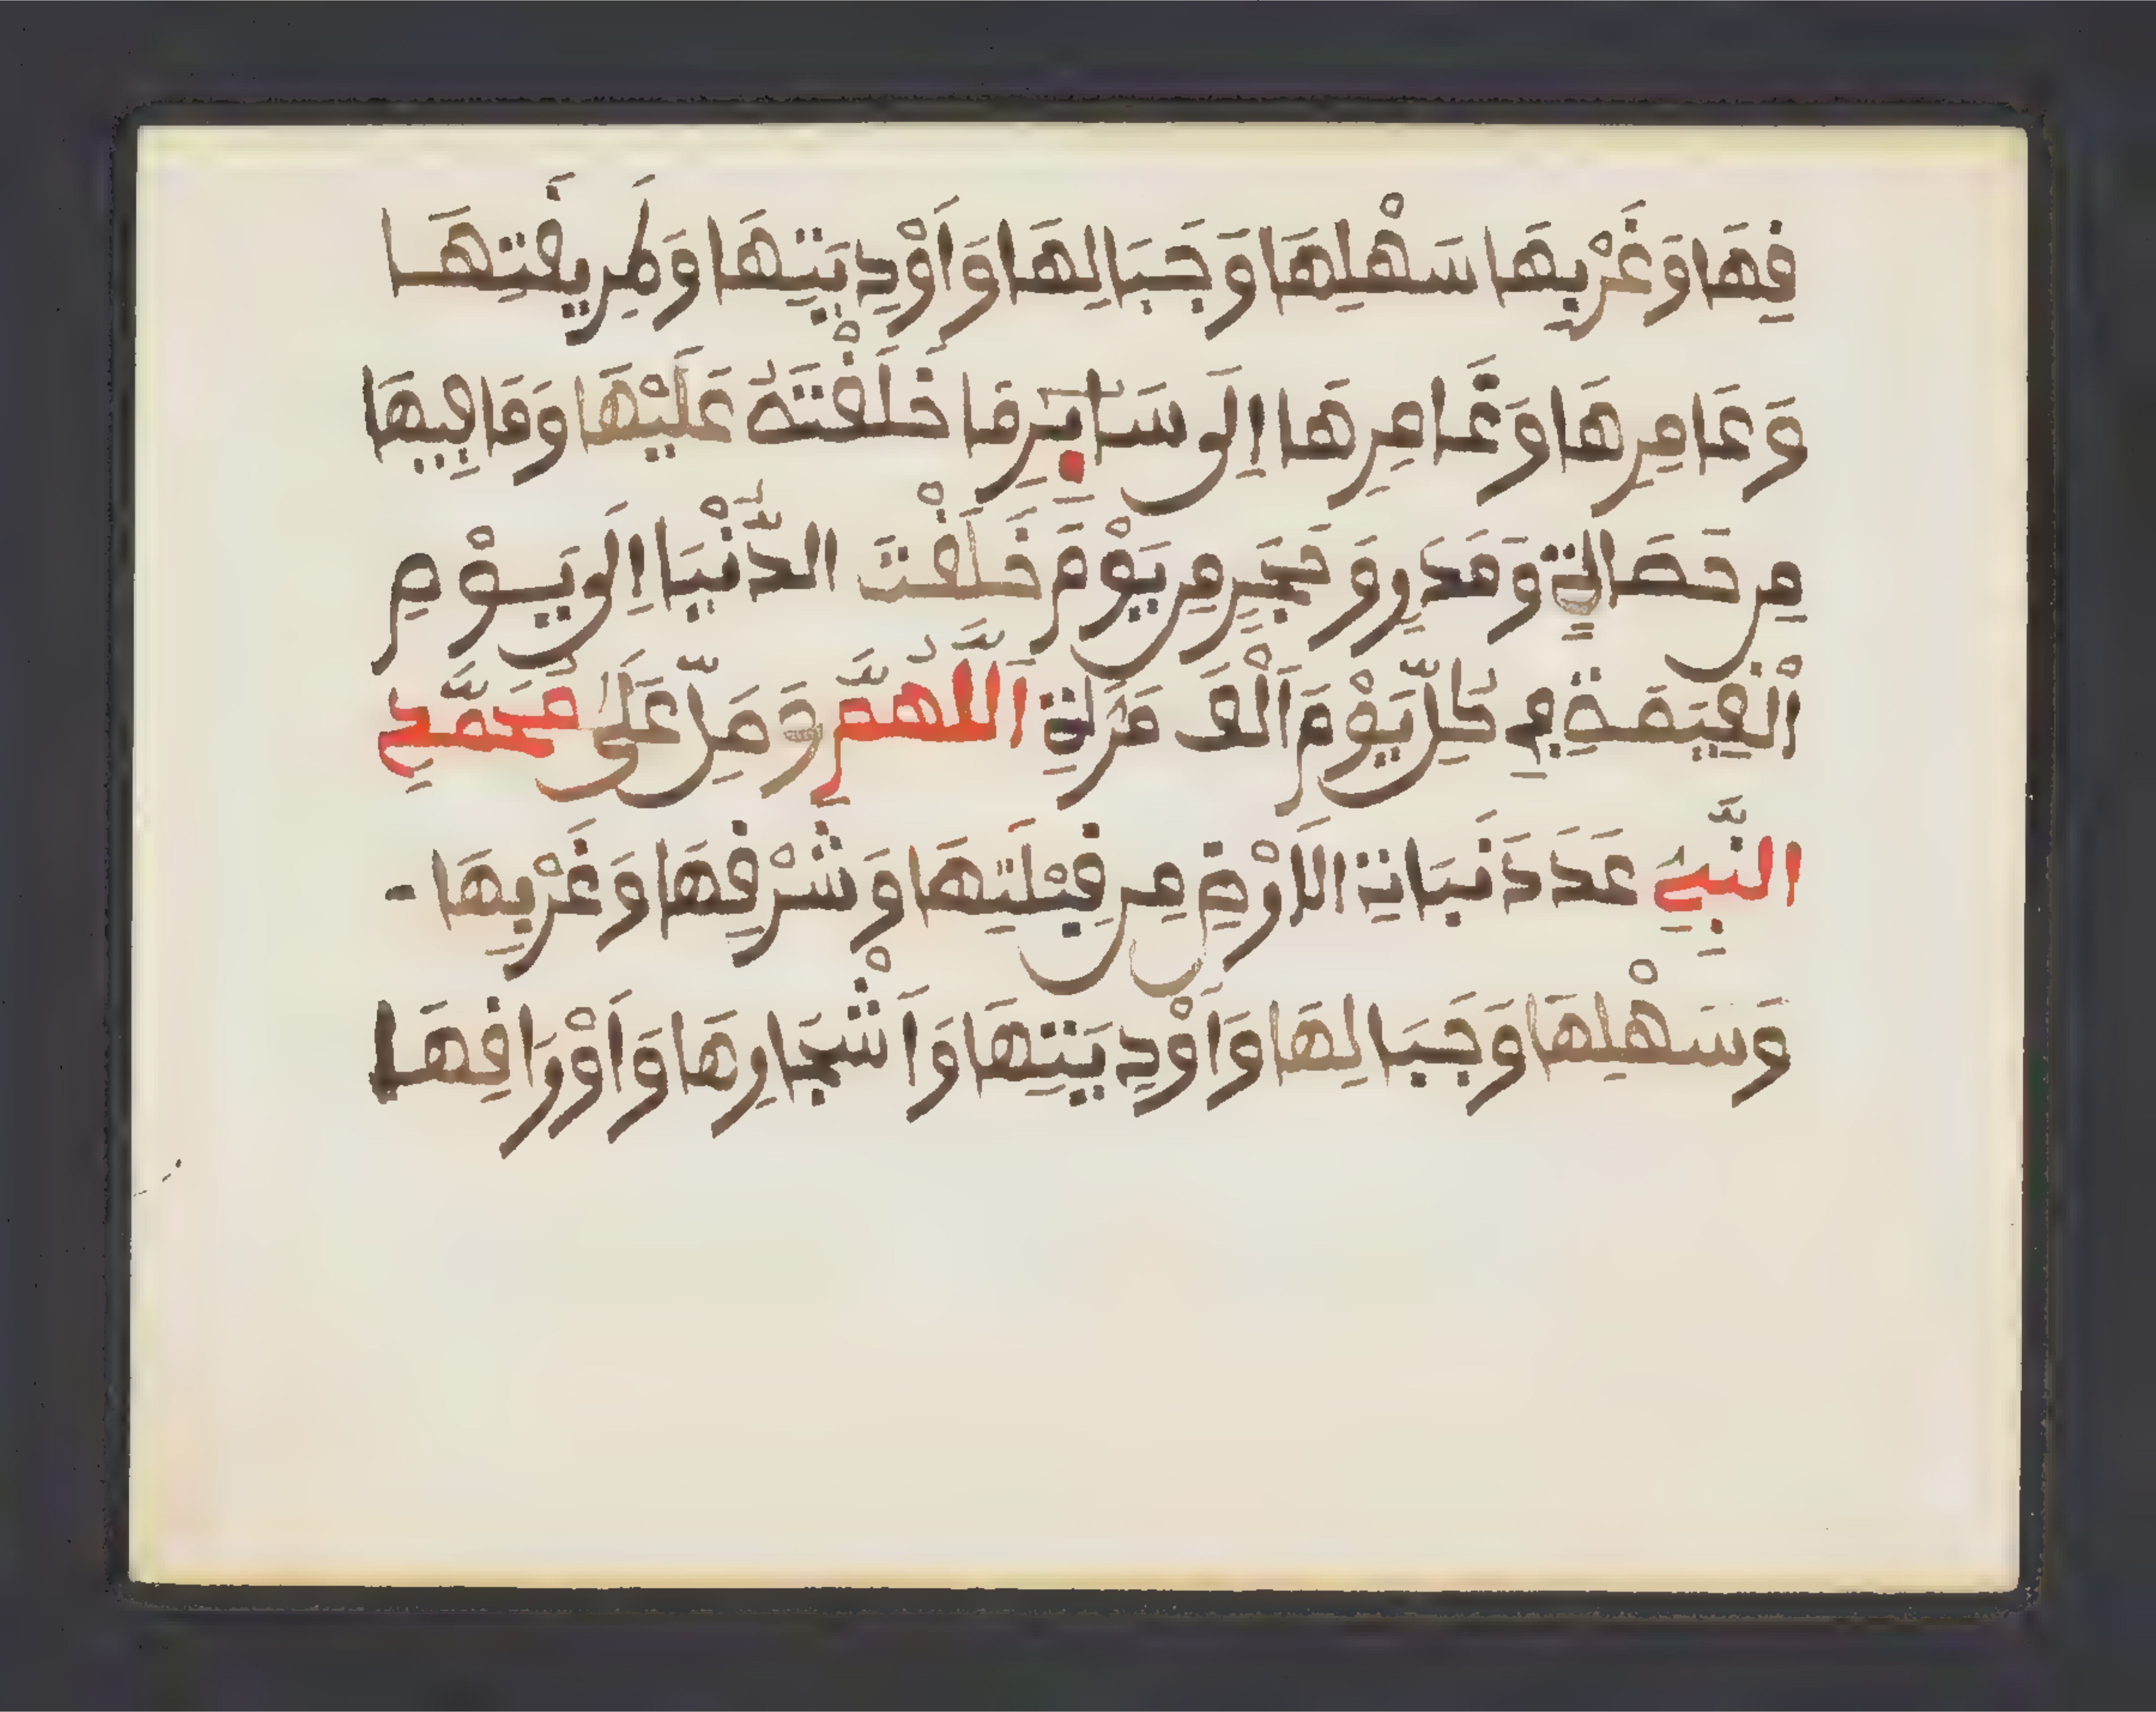 قِهَا وَغَرْبِهَا سَهْلِهَا وَجَبَالِهَا وَأَوْدِيَتِهَا وَطَرِيقَتِهَا
وَعَامِرِهَا وَغَامِرِهَا إِلَى سَائِرِ مَا خَلَقْتَهُ عَلَيْهَا وَمَا فِيهَا
مِن حَصَاةٍ وَمَدَرٍ وَحَجَرٍ مِن يَوْمَ خَلَقْتَ الدُّنْيَا إِلَى يَوْمِ
الْقِيَمَةِ فِي كُلِّ يَوْمٍ أَلْفَ مَرَّةٍ اَللَّهُمَّ وَصَلِّ عَلَى مُحَمَّدٍ
النَّبِيِّ عَدَدَ نَبَاتِ الْأَرْضِ مِن قِبْلَتِهَا وَشَرْقِهَا وَغَرْبِهَا
وَسَهْلِهَا وَجَبَالِهَا وَأَوْدِيَتِهَا وَأَشْجَارِهَا وَأَوْرَاقِهَا